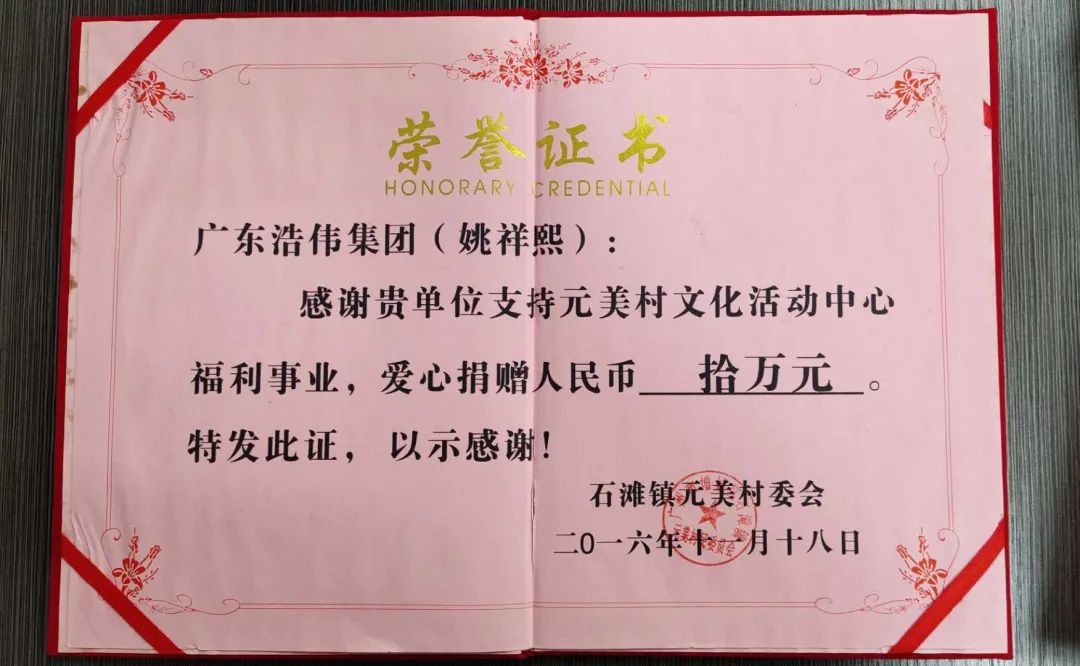 荣誉证书
HONORARY CREDENTIAL
广东浩伟集团（姚祥熙）:
感谢贵单位支持元美村文化活动中心
福利事业，爱心捐赠人民币 拾万元 。
特发此证，以示感谢!
石滩镇元美村委会
二0一六年十一月十八日